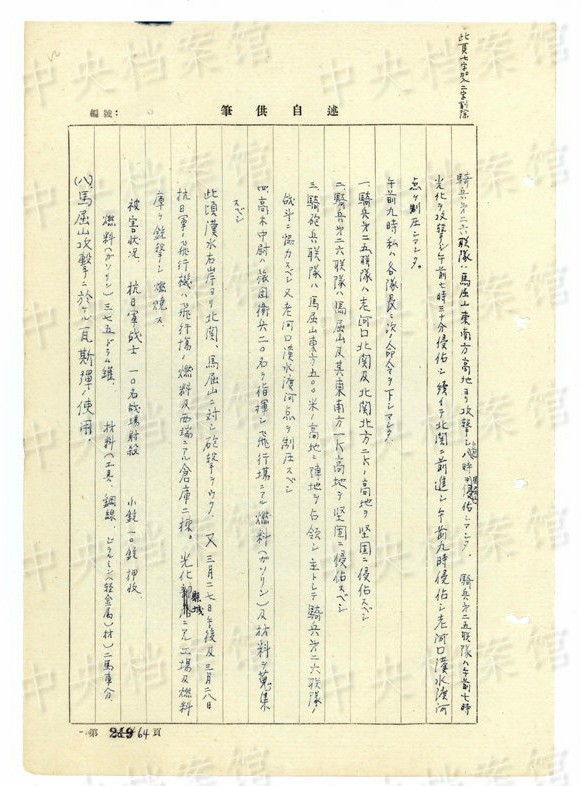 此頁七字加入二字削除
編號：
筆供自述
騎兵第二六联隊ハ馬屈山東南方高地ヲ攻撃シ八時頃侵佔シマシタ。騎兵第二五联隊ハ午前七時
光化ヲ攻撃シ午前七時三十分侵佔シ続イテ北関ニ前進シ午前九時侵佔シ老河口漢水渡河
点ヲ制圧シマシタ。
午前九時私ハ各隊長ニ次ノ命令ヲ下シマシタ。
一、騎兵第二五联隊ハ老河口北関及北関北方二K、高地ヲ堅固ニ侵佔スベシ
二、騎兵第二六联隊ハ馬屈山及其東南方一K高地ヲ堅固ニ侵佔スベシ
三、騎砲兵联隊ハ馬屈山東方五〇〇米ノ高地ニ陣地ヲ占領シ主トシテ騎兵第二六联隊ノ
战斗ニ協力スベシ又老河口漢水渡河点ヲ制圧スベシ
四、高木中尉ハ張国衛兵二〇名ヲ指揮シ飛行場ニアル燃料(ガソリン)及材料ヲ蒐集
スベシ
此頃漢水右岸ヨリ北関、馬屈山ニ対シ砲撃ヲウク、又三月二七日午後及三月二八日
抗日軍ノ飛行機ハ飛行場ノ燃料及西端ニアル倉庫二棟。光化縣城ニアル工場及燃料
庫ヲ銃撃シ燃焼ス
被害状況 抗日軍战士 一〇名战場射殺 小銃一〇銃押收
燃料(ガソリン)三七五ドラム罐、材料(工具、鋼線、軽金属)材)二馬車分、
(八)馬屈山攻撃ニ於ケル瓦斯弾ノ使用。
第 64 頁
中央档案馆